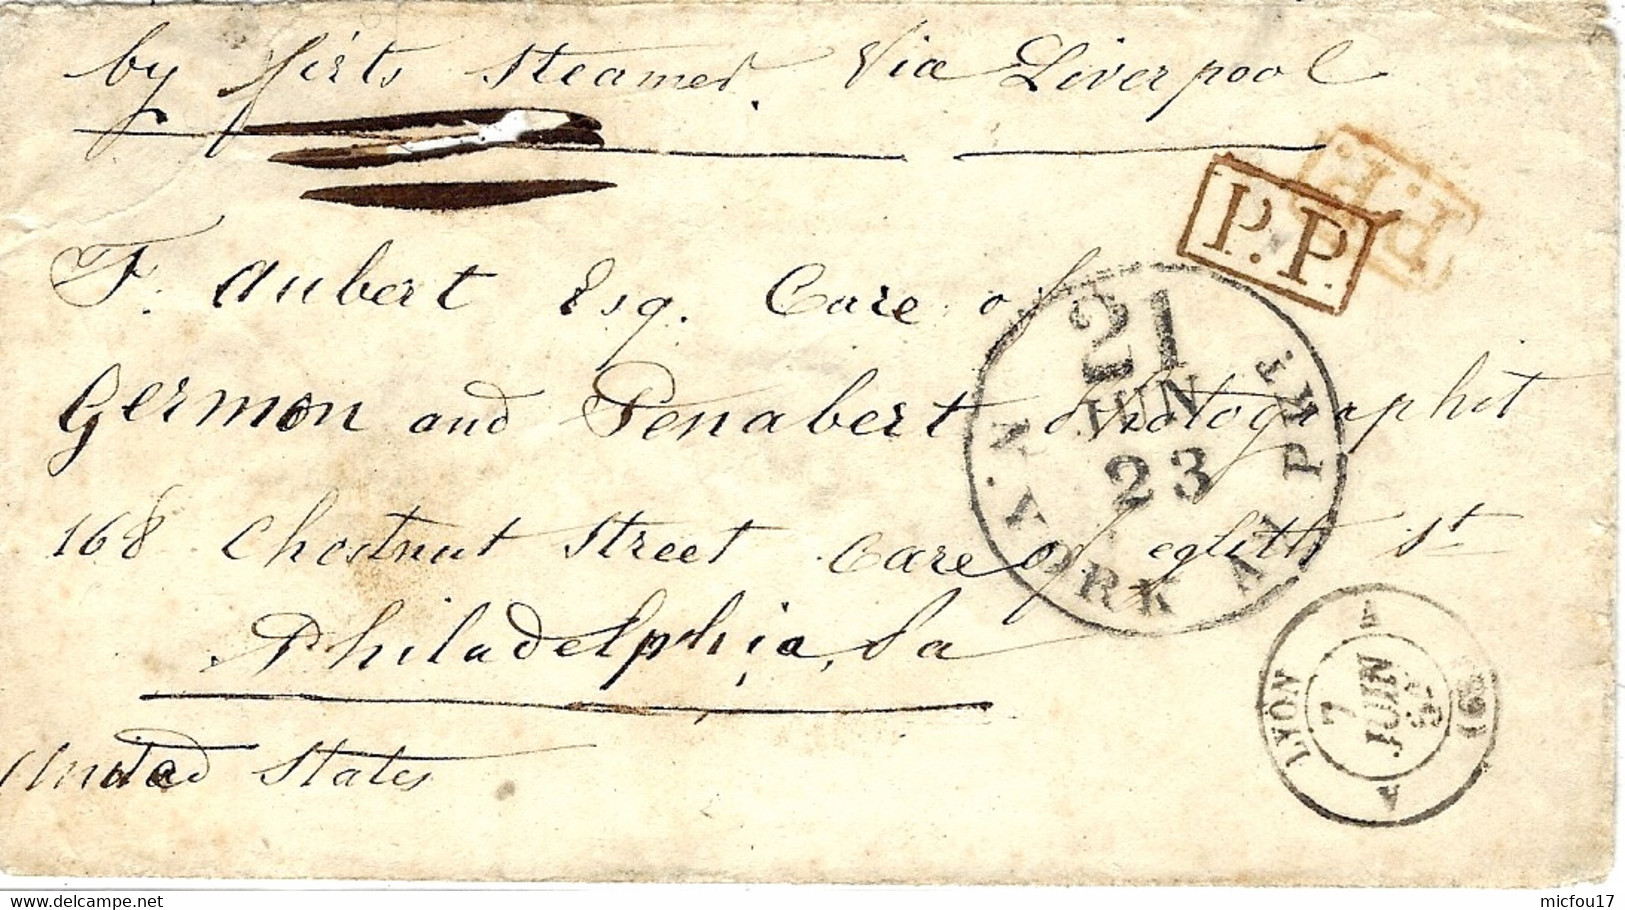 by firts Steamer. Via Liverpool
P.P.
F. Aubert Esq. Care of
Germon and Penabert Photographist
168 Chestnut Street Care of eghth St
Philadelphia, Pa
United States
21
JUN
23
N. YORK AM PKT.
LYON
7
JUIN
(68)
delcampe.net
micfou17